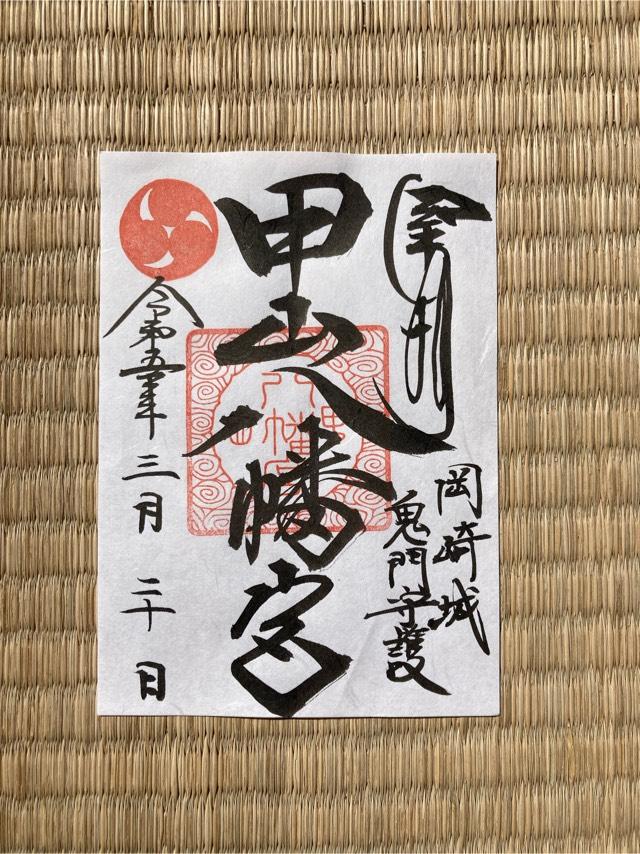 奉拝
岡崎城
鬼門守護
甲山八幡宮
令和五年三月二十日